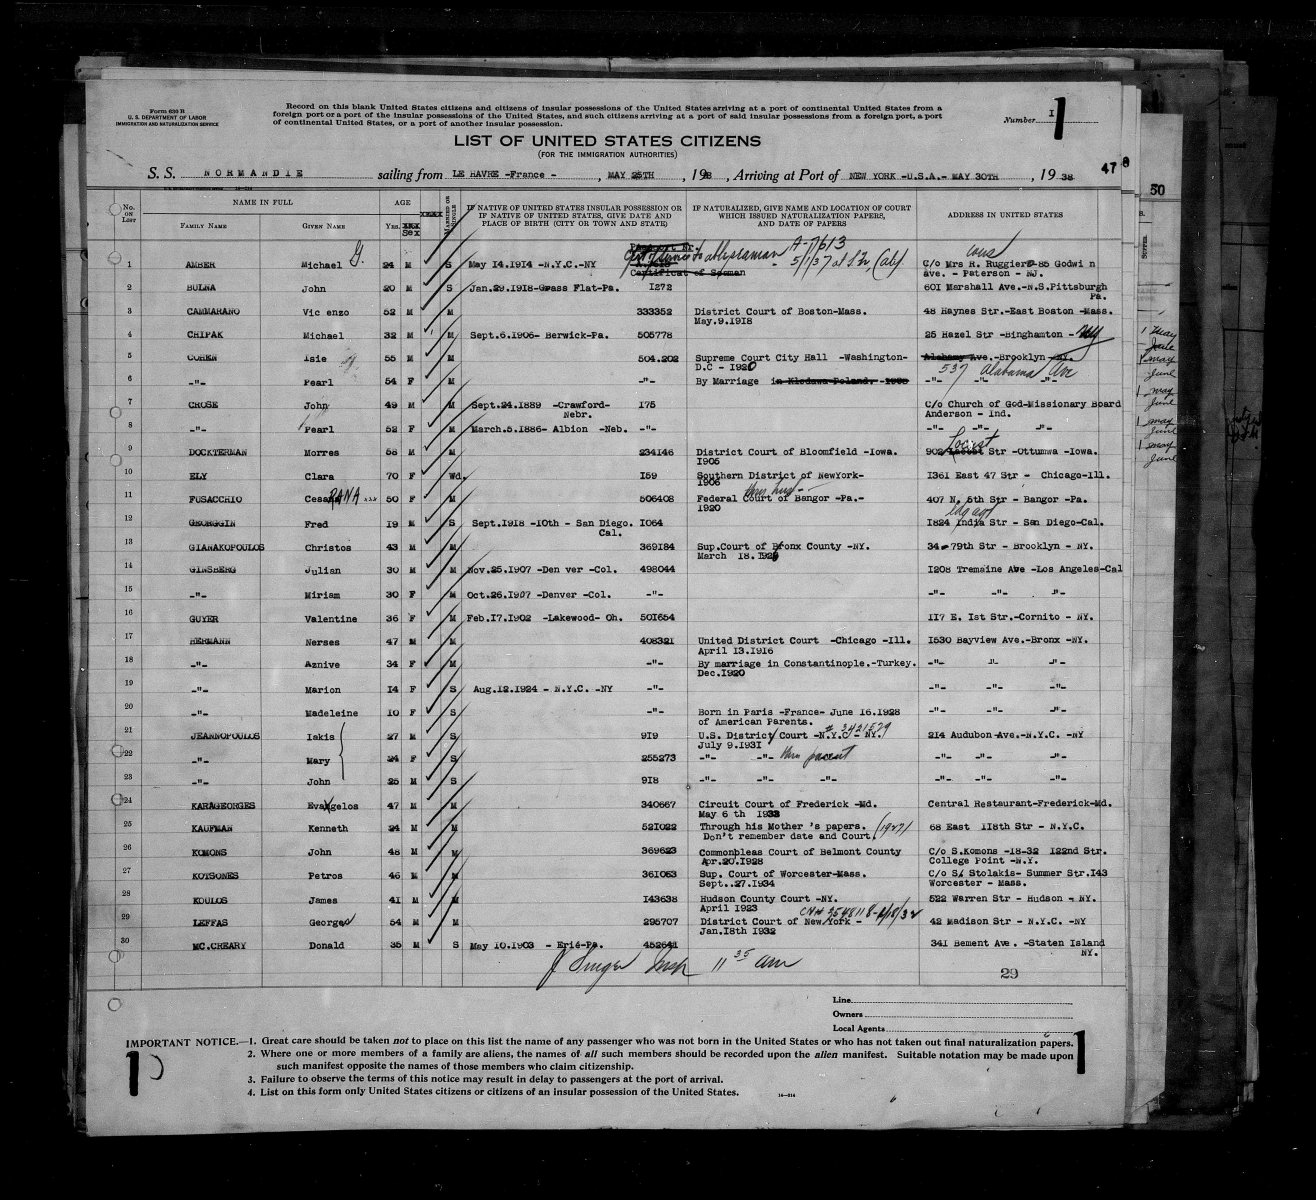 Form 630 B
U. S. DEPARTMENT OF LABOR
IMMIGRATION AND NATURALIZATION SERVICE
Record on this blank United States citizens and citizens of insular possessions of the United States arriving at a port of continental United States from a
foreign port or a port of the insular possessions of the United States, and such citizens arriving at a port of said insular possessions from a foreign port, a port
of continental United States, or a port of another insular possession.
Number I 1
LIST OF UNITED STATES CITIZENS
(FOR THE IMMIGRATION AUTHORITIES)
47
50
S. S. NORMANDIE sailing from LE HAVRE -France - , MAY 25TH , 1938, Arriving at Port of NEW YORK -U.S.A.- MAY 30TH , 1938
No. ON LIST NAME IN FULL AGE MARRIED OR SINGLE IF NATIVE OF UNITED STATES INSULAR POSSESSION OR IF NATIVE OF UNITED STATES, GIVE DATE AND PLACE OF BIRTH (CITY OR TOWN AND STATE) IF NATURALIZED, GIVE NAME AND LOCATION OF COURT WHICH ISSUED NATURALIZATION PAPERS, AND DATE OF PAPERS ADDRESS IN UNITED STATES
FAMILY NAME GIVEN NAME YRS. Sex
A-7613
1 AMBER Michael G. 24 M S May 14.1914 -N.Y.C.-NY 5/1/37 at S. Fr, (Calif C/o Mrs R. Ruggiero-85 Godwi n
Certificat of Seaman ave. - Paterson - NJ.
2 BULNA John 20 M S Jan.29.1918-Grass Flat-Pa. 1272 601 Marshall Ave.-N.S.Pittsburgh
Pa.
3 CAMMARANO Vic enzo 52 M M 333352 District Court of Boston-Mass. 48 Haynes Str.-East Boston -Mass.
May.9.1918
4 CHIPAK Michael 32 M M Sept.6.1906- Berwick-Pa. 505778 25 Hazel Str -Binghamton - NY
5 COHEN Isie 55 M M 504.202 Supreme Court City Hall -Washington- Alabamy Ave.-Brooklyn -NY.
D.C - 1920 537 Alabama Ave
6 -"- Pearl 54 F M -"- By Marriage in Klodawa Poland. -1905 -"- -"- -"-
7 CROSE John 49 M M Sept.24.1889 -Crawford- 175 C/o Church of God-Missionary Board
Nebr. Anderson - Ind.
8 -"- Pearl 52 F M March.5.1886- Albion -Neb. -"- -"- -"- -"-
Locust
9 DOCKTERMAN Morres 58 M M 234146 District Court of Bloomfield -Iowa. 902 Str -Ottumwa -Iowa.
1905
10 ELY Clara 70 F Wd. 159 Southern District of NewYork- 1361 East 47 Str - Chicago-Ill.
1906
11 FUSACCHIO Cesarana RANA xxx 50 F M 506408 Federal Court of Bangor -Pa.- 407 N. 5th Str - Bangor -Pa.
1920
12 GEORGGIN Fred 19 M S Sept.1918 -10th - San Diego. 1064 1824 India Str - San Diego-Cal.
Cal.
13 GIANAKOPOULOS Christos 43 M M 369184 Sup.Court of Bronx County -NY. 34-79th Str - Brooklyn - NY.
March 18.1929
14 GINSBERG Julian 30 M M Nov.25.1907 -Den ver -Col. 498044 1208 Tremaine Ave -Los Angeles-Cal
15 -"- Miriam 30 F M Oct.26.1907 -Denver -Col. -"- -"- -"- -"-
16 GUYER Valentine 36 F M Feb.17.1902 -Lakewood- Oh. 501654 117 E. 1st Str.-Cornito - NY.
17 HERMANN Nerses 47 M M 408321 United District Court -Chicago -Ill. 1530 Bayview Ave.-Bronx -NY.
April 13.1916
18 -"- Aznive 34 F M -"- By marriage in Constantinople.-Turkey. -"- -"- -"-
Dec.1920
19 -"- Marion 14 F S Aug.12.1924 - N.Y.C. -NY -"- -"- -"- -"-
20 -"- Madeleine 10 F S -"- Born in Paris -France- June 16.1928 -"- -"- -"-
of American Parents.
# 3421579
21 JEANNOPOULOS Iakis 27 M S 919 U.S. District Court -N.Y.C - NY. 214 Audubon-Ave.-N.Y.C. -NY
July 9.1931
22 -"- Mary 24 F S 255273 -"- -"- thru parent -"- -"- -"-
23 -"- John 25 M S 918 -"- -"- -"- -"- -"- -"-
24 KARAGEORGES Evangelos 47 M M 340667 Circuit Court of Frederick -Md. Central Restaurant-Frederick-Md.
May 6 th 1932
25 KAUFMAN Kenneth 24 M M 521022 Through his Mother 's papers. (1927) 68 East 118th Str - N.Y.C.
Don't remember date and Court.
26 KOMONS John 48 M M 369623 Commonpleas Court of Belmont County C/o S.Komons -18-32 122nd Str.
Apr.20.1928 College Point -N.Y.
27 KOTSONES Petros 46 M M 361063 Sup. Court of Worcester-Mass. C/o S. Stolakis- Summer Str.143
Sept..27.1934 Worcester - Mass.
28 KOULOS James 41 M M 143638 Hudson County Court -NY. 522 Warren Str - Hudson - NY.
April 1923
29 LEFFAS George 54 M M 295707 District Court of New York - 42 Madison Str - N.Y.C. -NY
Jan.18th 1932
30 MC.CREARY Donald 35 M S May 10.1903 - Erié-Pa. 452641 341 Bement Ave . -Staten Island
NY.
J Singer Insp 11 35 am
29
Line
Owners
Local Agents
IMPORTANT NOTICE.—1. Great care should be taken not to place on this list the name of any passenger who was not born in the United States or who has not taken out final naturalization papers.
2. Where one or more members of a family are aliens, the names of all such members should be recorded upon the alien manifest. Suitable notation may be made upon
such manifest opposite the names of those members who claim citizenship.
3. Failure to observe the terms of this notice may result in delay to passengers at the port of arrival.
4. List on this form only United States citizens or citizens of an insular possession of the United States.
1
1